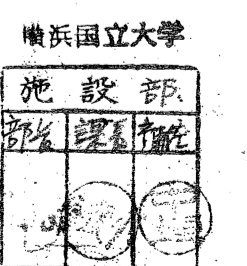 横浜国立大学
施設部
部長 課長 補佐